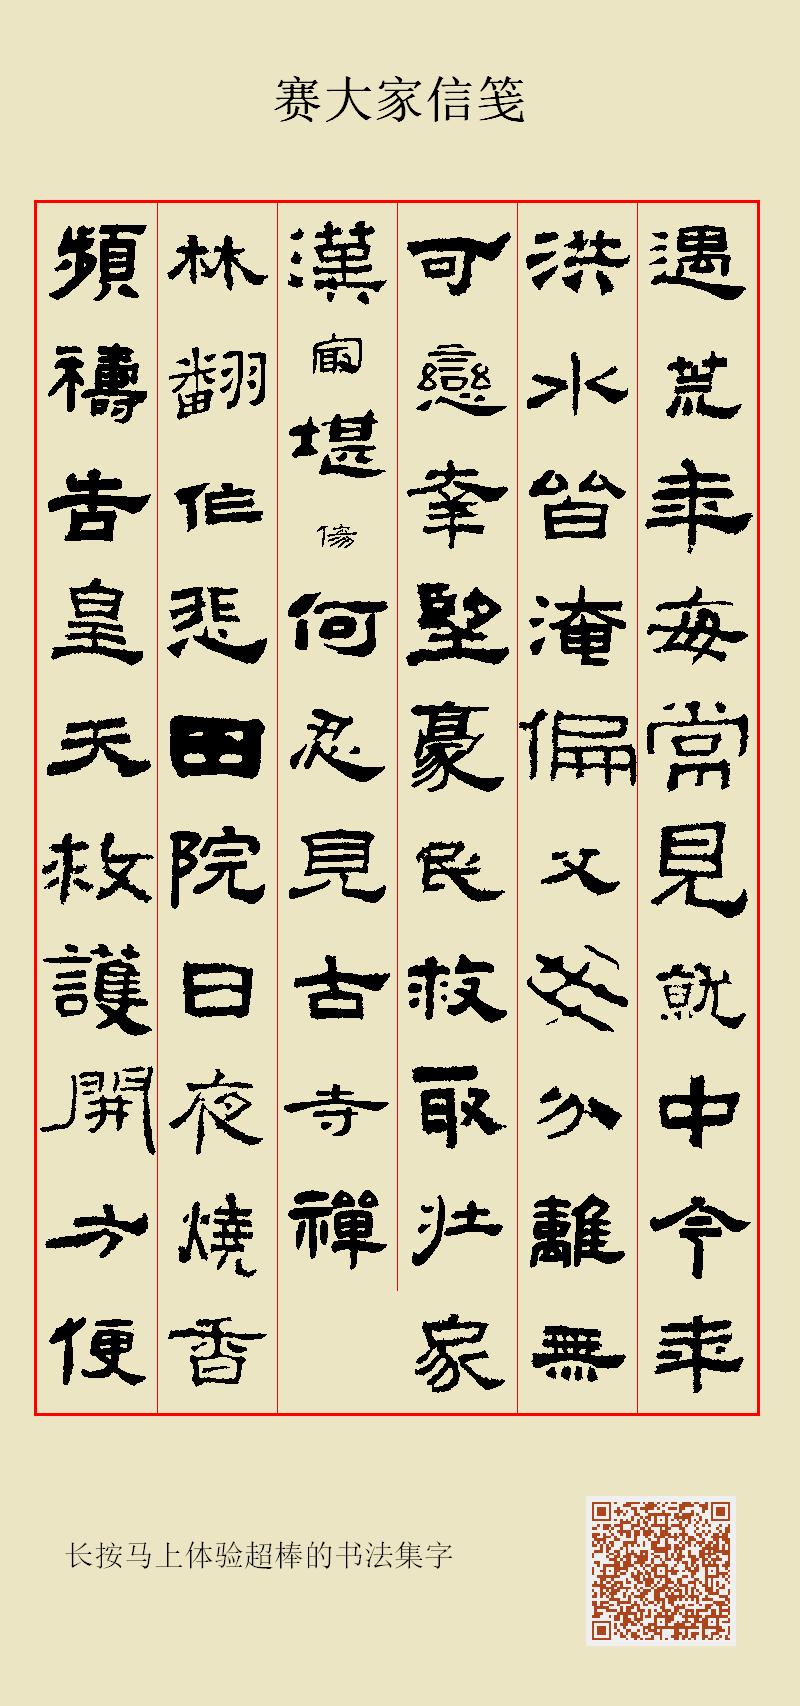 赛大家信笺
遇荒年每常見就中今年
洪水皆淹偏父母分離無
可戀幸望豪民救取壯家
漢最堪傷何忍見古寺禪
林翻作悲田院日夜燒香
頻禱告皇天救護開方便
长按马上体验超棒的书法集字